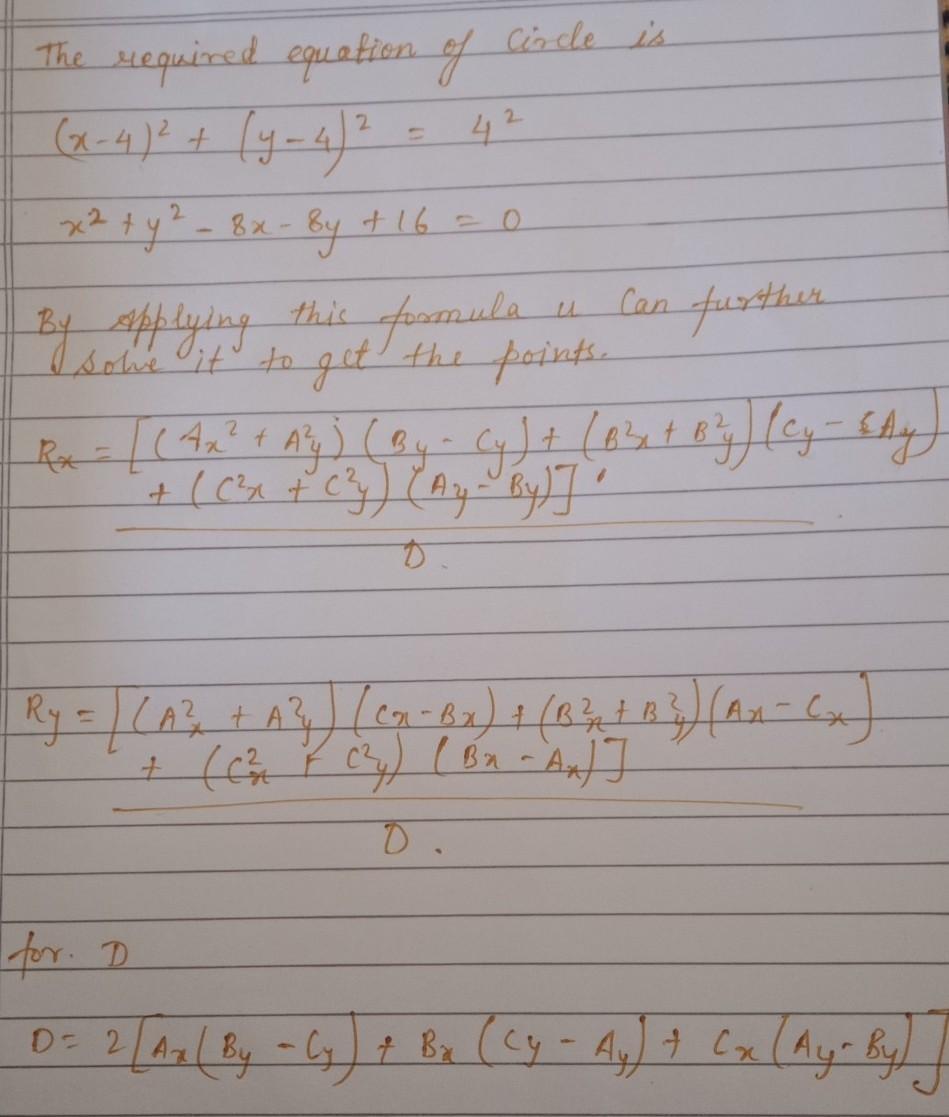 The required equation of Circle is
(x-4)² + (y-4)² = 4²
x² + y² - 8x - 8y + 16 = 0
By applying this formula u Can further
solve it to get the points.
Rx = [(Ax² + A²y) (By - Cy) + (B²x + B²y) (Cy - Ay)
+ (C²x + C²y) (Ay - By)]
D.
Ry = [(A²x + A²y) (Cx - Bx) + (B²x + B²y) (Ax - Cx)
+ (C²x + C²y) (Bx - Ax)]
D.
for. D
D = 2[Ax(By - Cy) + Bx (Cy - Ay) + Cx (Ay - By)]